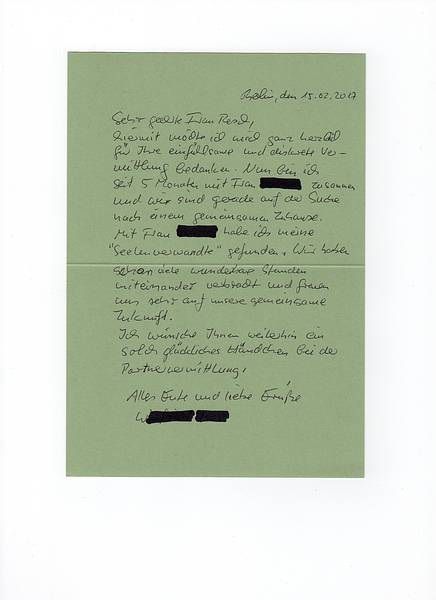 Berlin, den 15.02.2017
Sehr geehrte Frau Resch,
hiermit möchte ich mich ganz herzlich
für Ihre einfühlsame und diskrete Ver-
mittlung bedanken. Nun bin ich
seit 5 Monaten mit Frau zusammen
und wir sind gerade auf der Suche
nach einem gemeinsamen Zuhause.
Mit Frau habe ich meine
"Seelenverwandte" gefunden. Wir haben
schon viele wunderbare Stunden
miteinander verbracht und freuen
uns sehr auf unsere gemeinsame
Zukunft.
Ich wünsche Ihnen weiterhin ein
solch glückliches Händchen bei der
Partnervermittlung.
Alles Gute und liebe Grüße